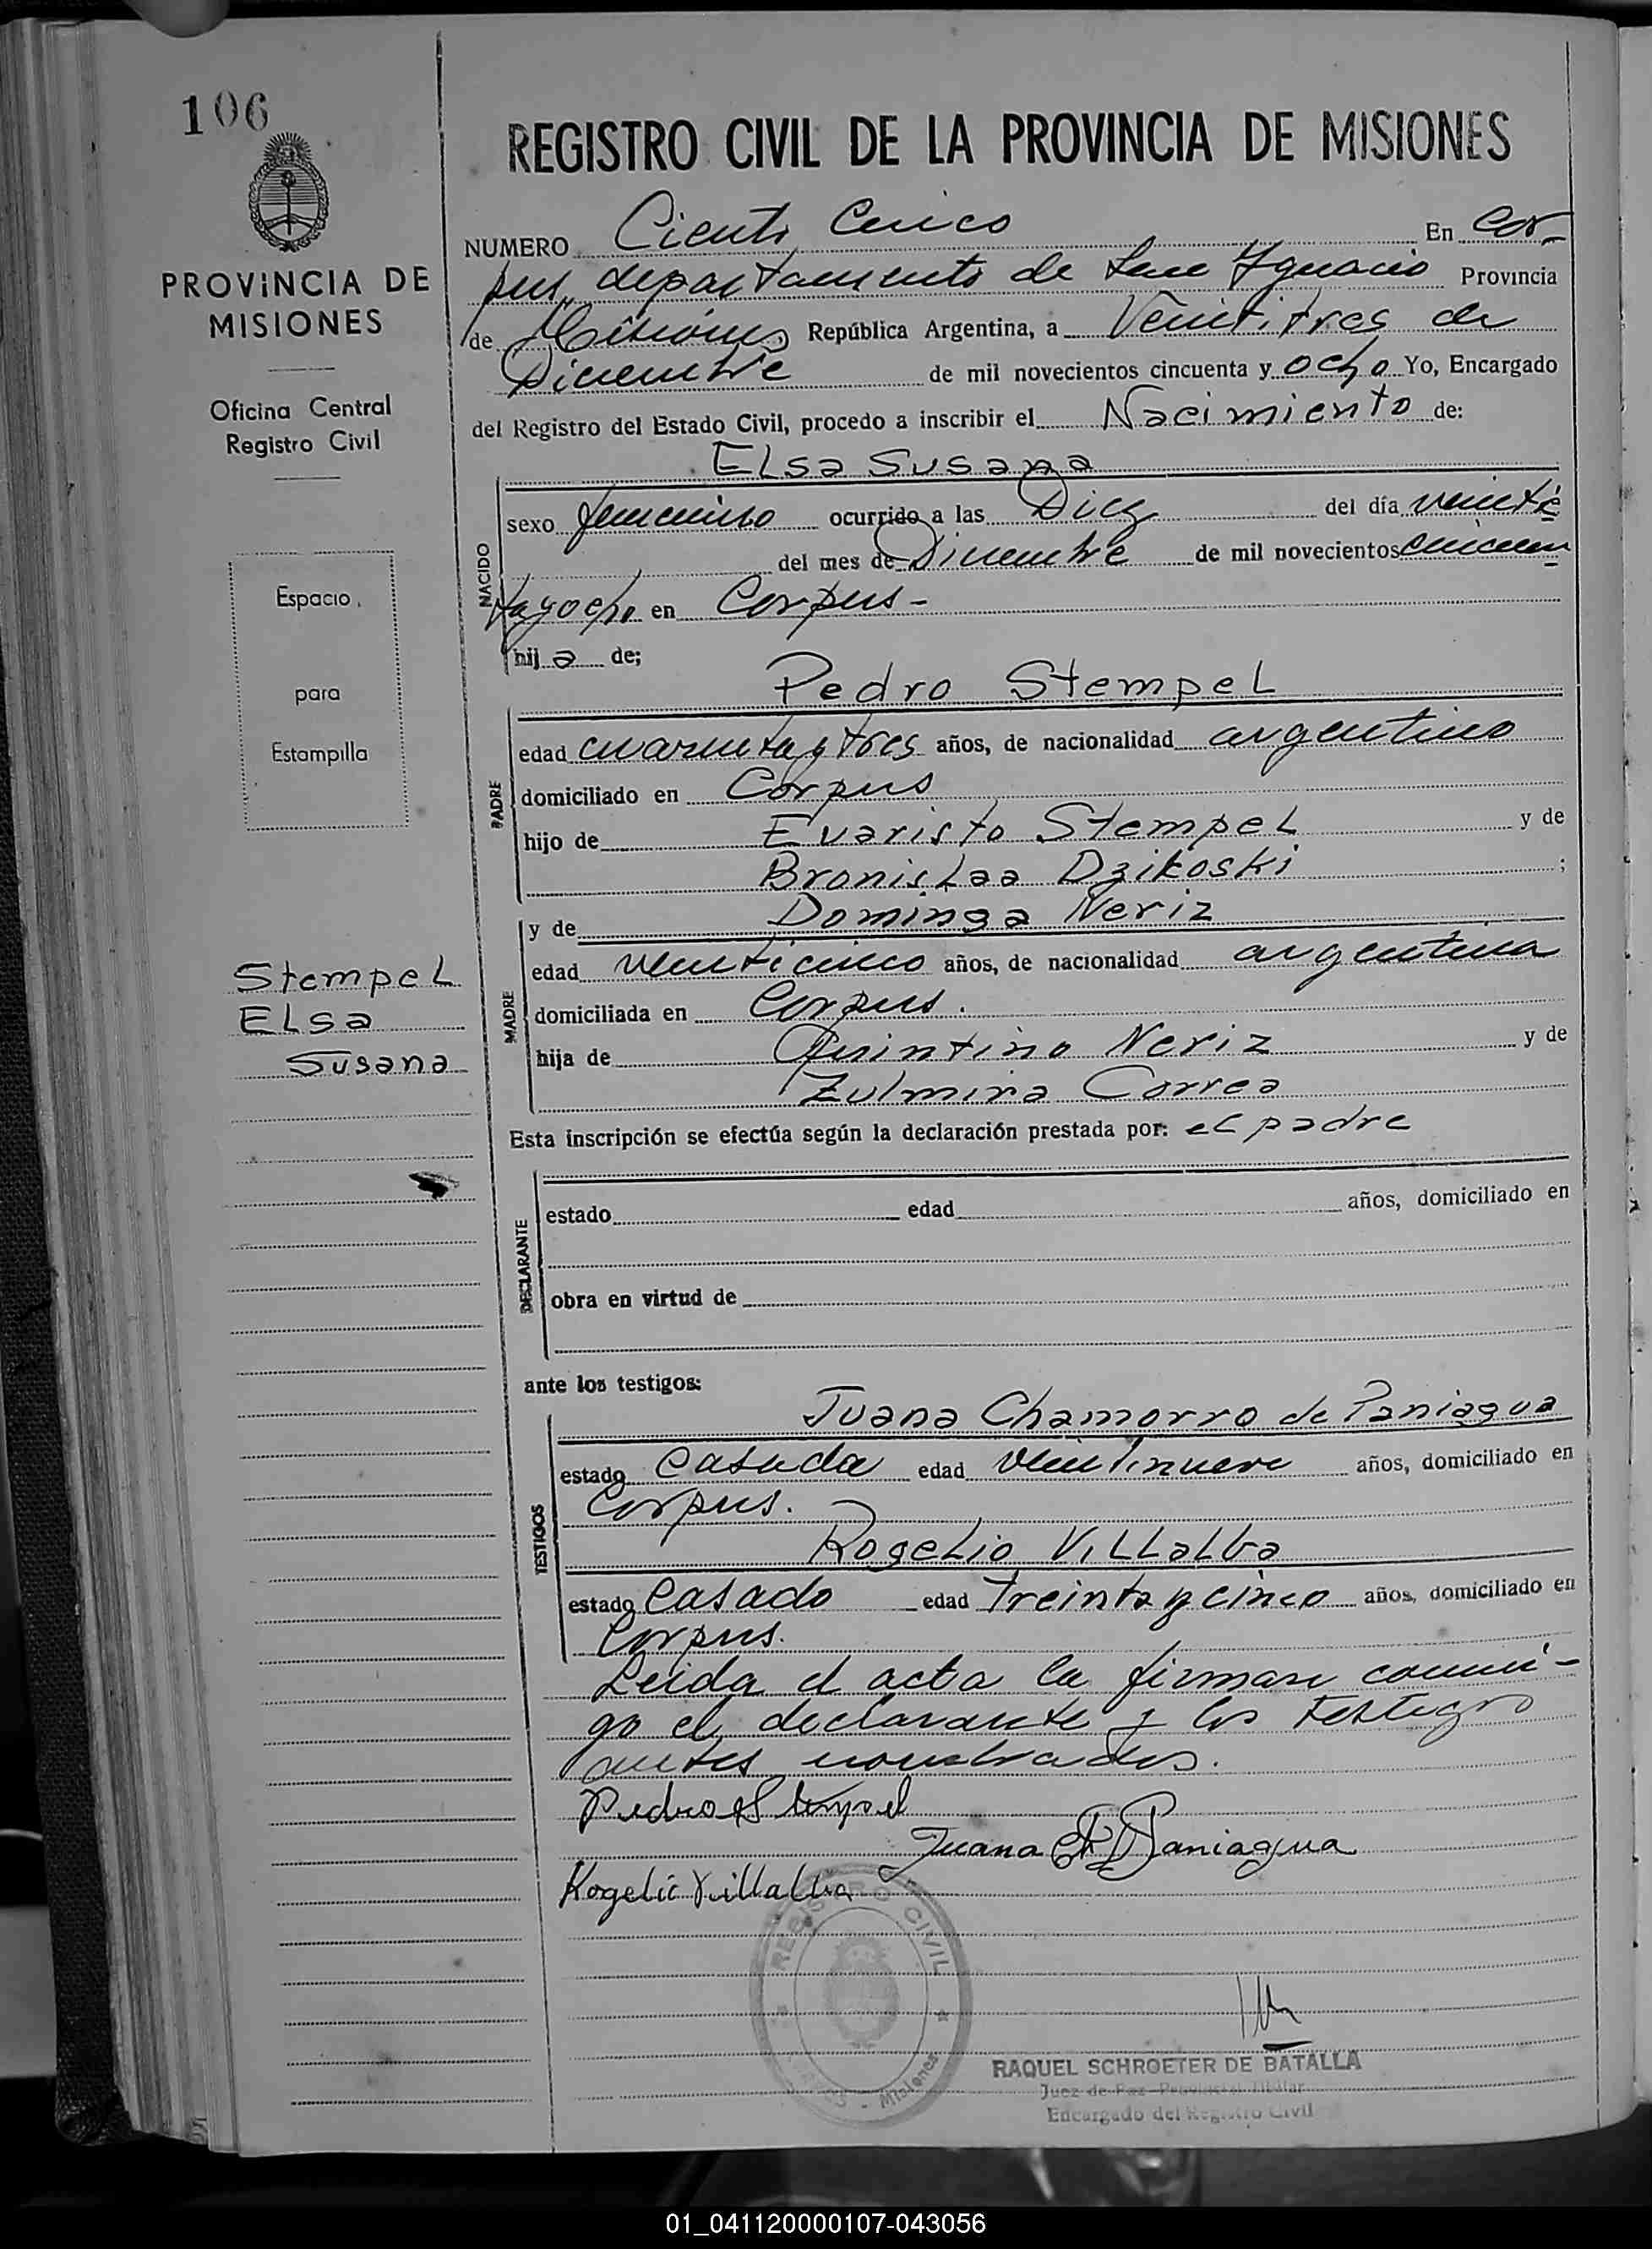 106
PROVINCIA DE
MISIONES
Oficina Central
Registro Civil
Espacio
para
Estampilla
Stempel
Elsa
Susana
REGISTRO CIVIL DE LA PROVINCIA DE MISIONES
NUMERO Ciento Cinco En Cor-
pus, departamento de San Ygnacio Provincia
de Misiones República Argentina, a Veintitres de
Diciembre de mil novecientos cincuenta y ocho Yo, Encargado
del Registro del Estado Civil, procedo a inscribir el Nacimiento de:
Elsa Susana
NACIDO
sexo femenino ocurrido a las Diez del día veinte
del mes de Diciembre de mil novecientos cincuen
tayocho en Corpus-
hij a de;
Pedro Stempel
PADRE
edad cuarenta y tres años, de nacionalidad argentino
domiciliado en Corpus
hijo de Evaristo Stempel y de
Bronislaa Dzikoski ;
y de Dominga Neriz
MADRE
edad veinticinco años, de nacionalidad argentina
domiciliada en Corpus.
hija de Quintino Neriz y de
Zulmira Correa
Esta inscripción se efectúa según la declaración prestada por: el padre
DECLARANTE
estado edad años, domiciliado en
obra en virtud de
ante los testigos:
Juana Chamorro de Paniagua
TESTIGOS
estado Casada edad veintinueve años, domiciliado en
Corpus.
Rogelio Villalba
estado Casado edad Treinta y cinco años, domiciliado en
Corpus.
Leida el acta la firman conmi-
go el declarante y los testigos
antes nombrados.
Pedro Stempel
Juana Ch D Paniagua
Rogelio Villalba
REGISTRO CIVIL
Misiones
RAQUEL SCHROETER DE BATALLA
Juez de Paz Provincial Titular
Encargado del Registro Civil
01_041120000107-043056